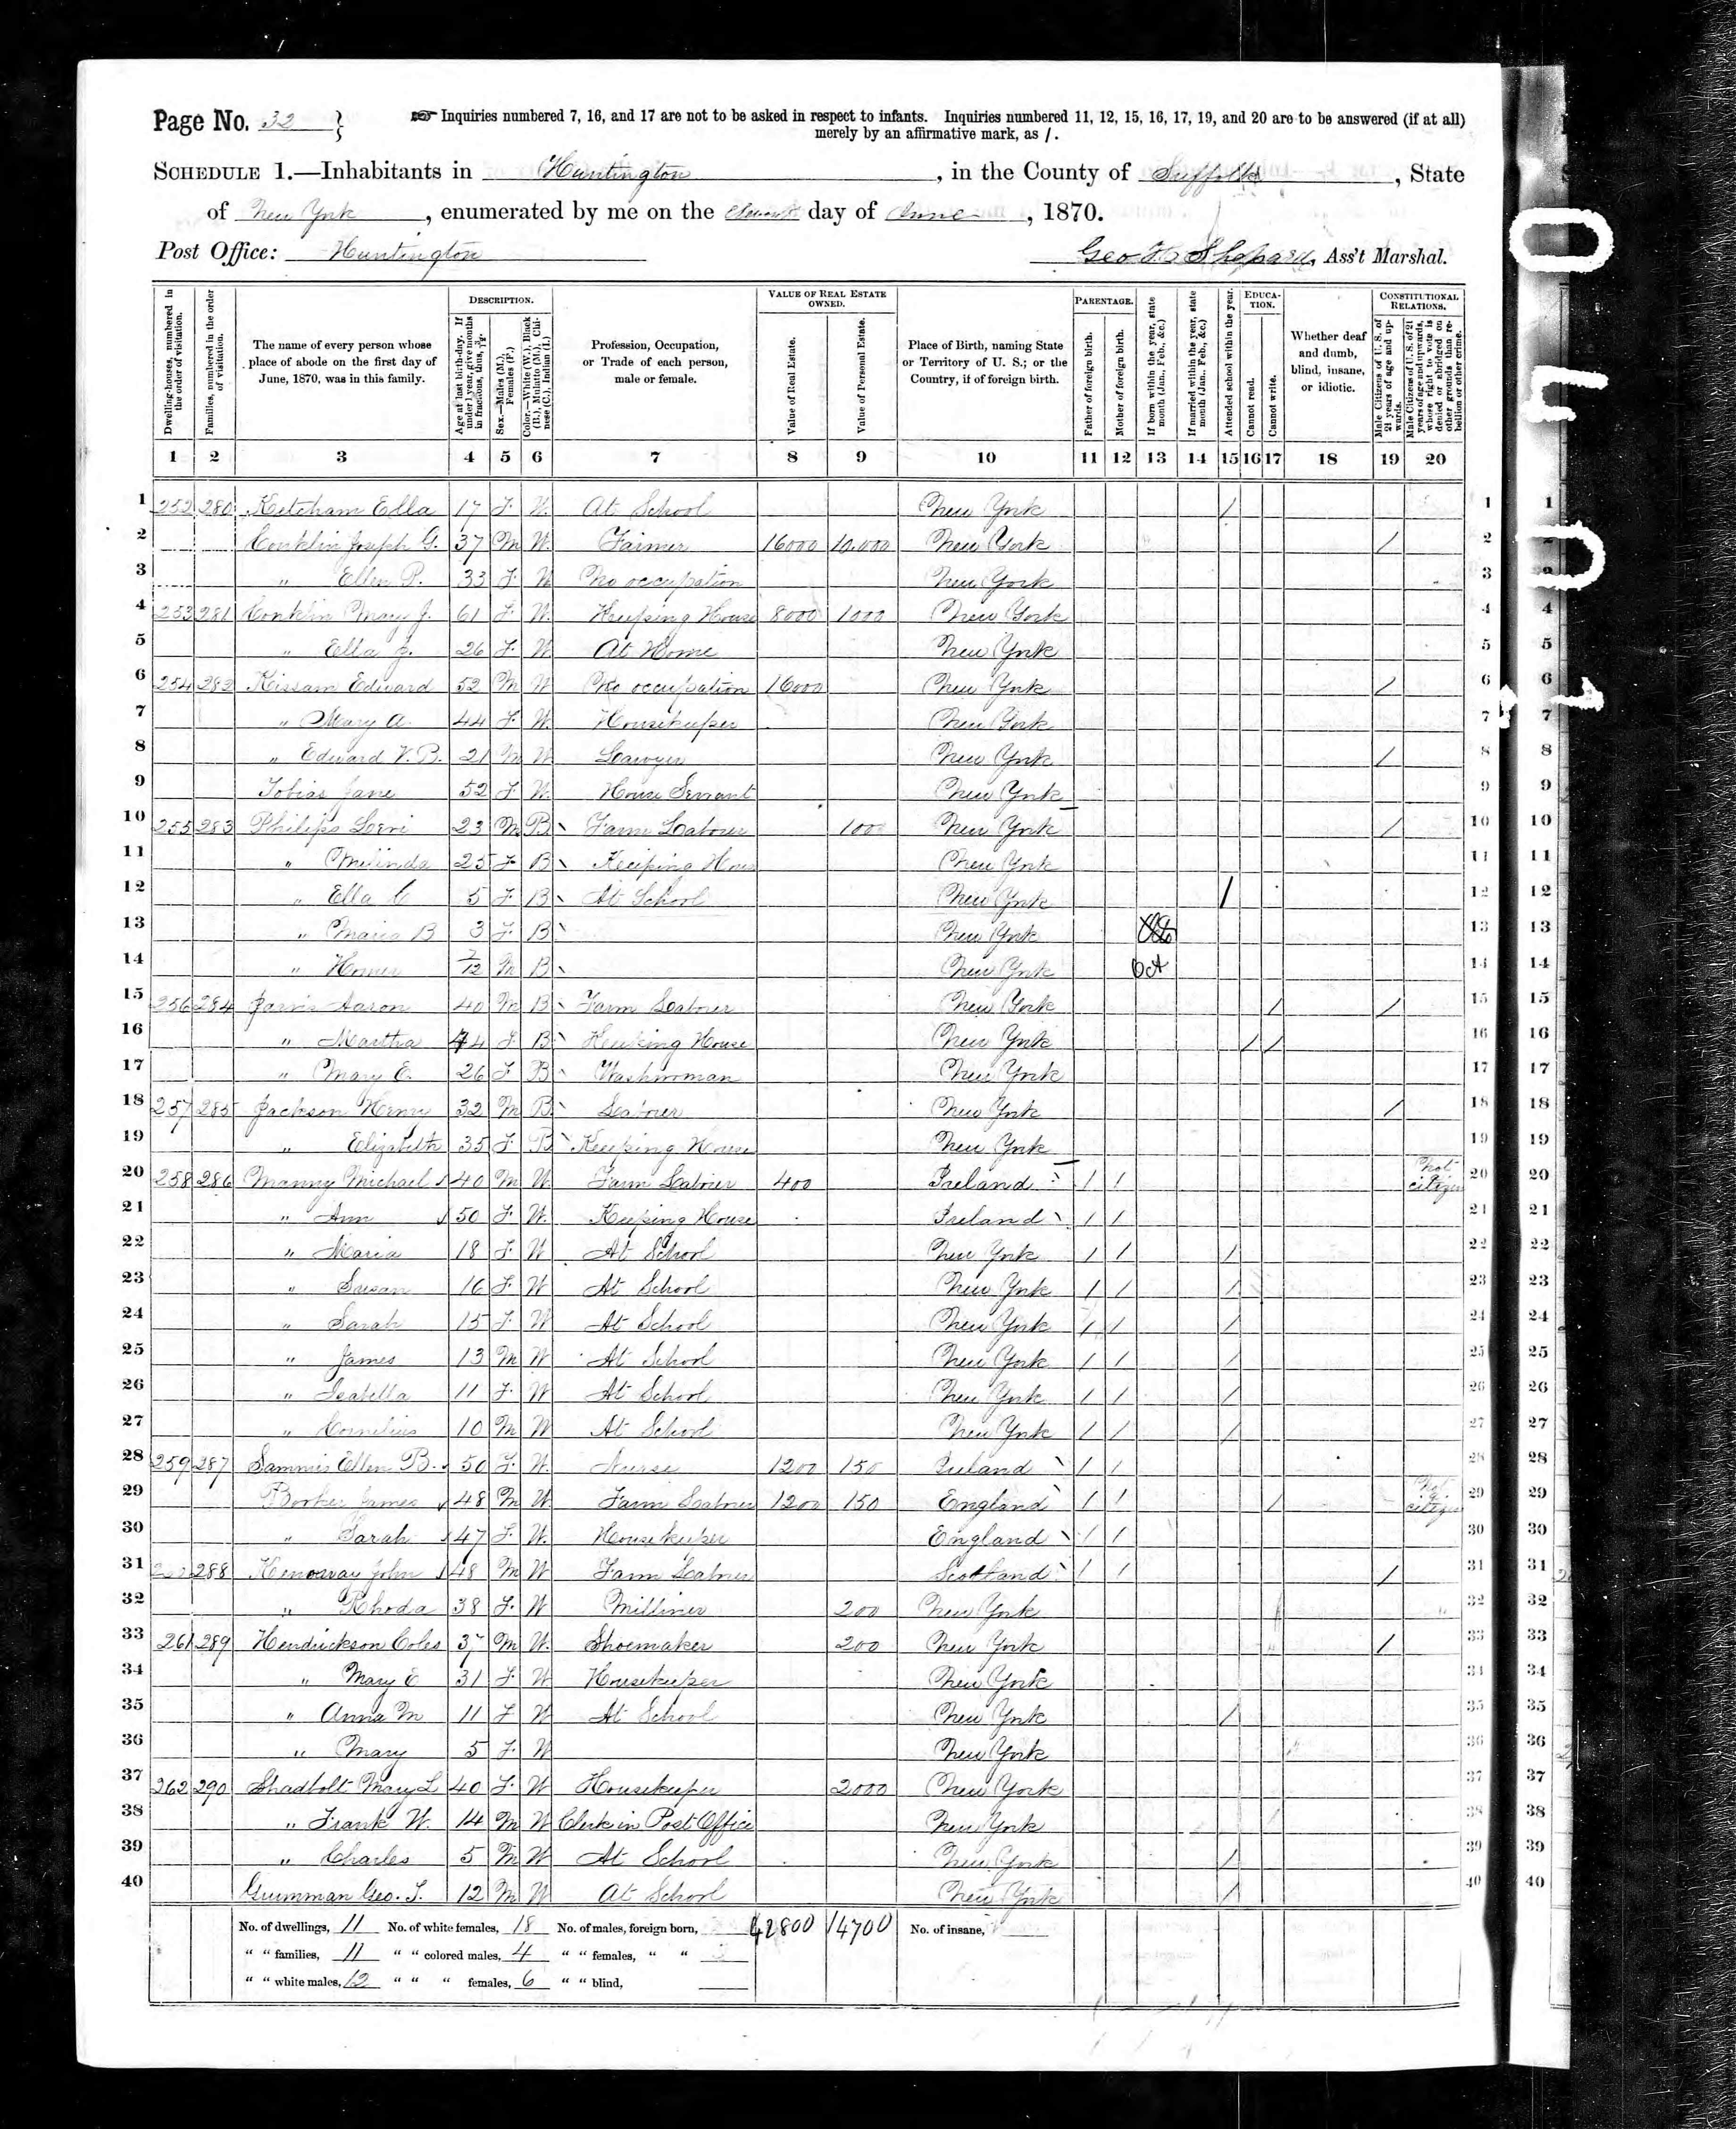 Page No. 32
☞ Inquiries numbered 7, 16, and 17 are not to be asked in respect to infants. Inquiries numbered 11, 12, 15, 16, 17, 19, and 20 are to be answered (if at all)
merely by an affirmative mark, as /.
SCHEDULE 1.—Inhabitants in Huntington, in the County of Suffolk, State
of New York, enumerated by me on the day of June, 1870.
Post Office: Huntington
Geo Shepard, Ass't Marshal.
Dwelling-houses, numbered in the order of visitation.
Families, numbered in the order of visitation.
The name of every person whose place of abode on the first day of June, 1870, was in this family.
DESCRIPTION.
Age at last birth-day. If under 1 year, give months in fractions, thus, 3/12.
Sex.—Males (M.), Females (F.)
Color.—White (W.), Black (B.), Mulatto (M.), Chinese (C.), Indian (I.)
Profession, Occupation, or Trade of each person, male or female.
VALUE OF REAL ESTATE OWNED.
Value of Real Estate.
Value of Personal Estate.
Place of Birth, naming State or Territory of U. S.; or the Country, if of foreign birth.
PARENTAGE.
Father of foreign birth.
Mother of foreign birth.
If born within the year, state month (Jan., Feb., &c.)
If married within the year, state month (Jan., Feb., &c.)
Attended school within the year.
EDUCATION.
Cannot read.
Cannot write.
Whether deaf and dumb, blind, insane, or idiotic.
CONSTITUTIONAL RELATIONS.
Male Citizens of U. S. of 21 years of age and upwards.
Male Citizens of U. S. of 21 years of age and upwards, whose right to vote is denied or abridged on other grounds than rebellion or other crime.
1 2 3 4 5 6 7 8 9 10 11 12 13 14 15 16 17 18 19 20
1 252 280 Ketcham Ella 17 F. W. At School New York / 1
2 Conklin Joseph G. 37 M W. Farmer 16000 10,000 New York / 2
3 " Ellen P. 33 F. W No occupation New York 3
4 253 281 Conklin Mary J. 61 F. W. Keeping House 8000 1000 New York 4
5 " Ella J. 26 F. W At Home New York 5
6 254 282 Kissam Edward 52 M W No occupation 16000 New York / 6
7 " Mary A. 44 F. W. Housekeeper New York 7
8 " Edward V. B. 21 M W Lawyer New York / 8
9 Tobias Jane 52 F W. House Servant New York 9
10 255 283 Philips Levi 23 M B Farm Laborer 100 New York / 10
11 " Milinda 25 F B Keeping House New York 11
12 " Ella C 5 F B At School New York / 12
13 " B 3 F. B New York 13
14 " Homer 7/12 M B New York Oct 14
15 256 284 Jarvis Aaron 40 M B Farm Laborer New York / / 15
16 " Martha 44 F. B Keeping House New York / / 16
17 " Mary E. 26 F B Washwoman New York 17
18 257 285 Jackson Henry 32 M B Laborer New York / 18
19 " Elizabeth 35 F B Keeping House New York 19
20 258 286 Manny Michael 40 M W. Farm Laborer 400 Ireland / / Not citizen 20
21 " Ann 50 F. W. Keeping House Ireland / / 21
22 " Maria 18 F. W At School New York / / / 22
23 " Susan 16 F W At School New York / / / 23
24 " Sarah 15 F. W At School New York / / / 24
25 " James 13 M W At School New York / / / 25
26 " Isabella 11 F. W At School New York / / / 26
27 " Cornelius 10 M W At School New York / / / 27
28 259 287 Sammis Ellen B. 50 F. W. Nurse 1200 150 Ireland / / 28
29 James 48 M W Farm Laborer 1200 150 England / / / Not a citizen 29
30 " Sarah 47 F. W. Housekeeper England / / 30
31 288 John 48 M W Farm Laborer Scotland / / / 31
32 " Rhoda 38 F. W Milliner 200 New York 32
33 261 289 Hendrickson Coles 37 M W. Shoemaker 200 New York / 33
34 " Mary E 31 F. W Housekeeper New York 34
35 " Anna M 11 F W At School New York / 35
36 " Mary 5 F. W New York 36
37 262 290 Shadbolt Mary L 40 F. W Housekeeper 2000 New York 37
38 " Frank W. 14 M W Clerk in Post Office New York 38
39 " Charles 5 M W At School New York / 39
40 Geo. T. 12 M W At School New York / 40
No. of dwellings, 11 No. of white females, 18 No. of males, foreign born, 42800 14700 No. of insane,
" " families, 11 " " colored males, 4 " " females, " "
" " white males, 12 " " " females, 6 " " blind,